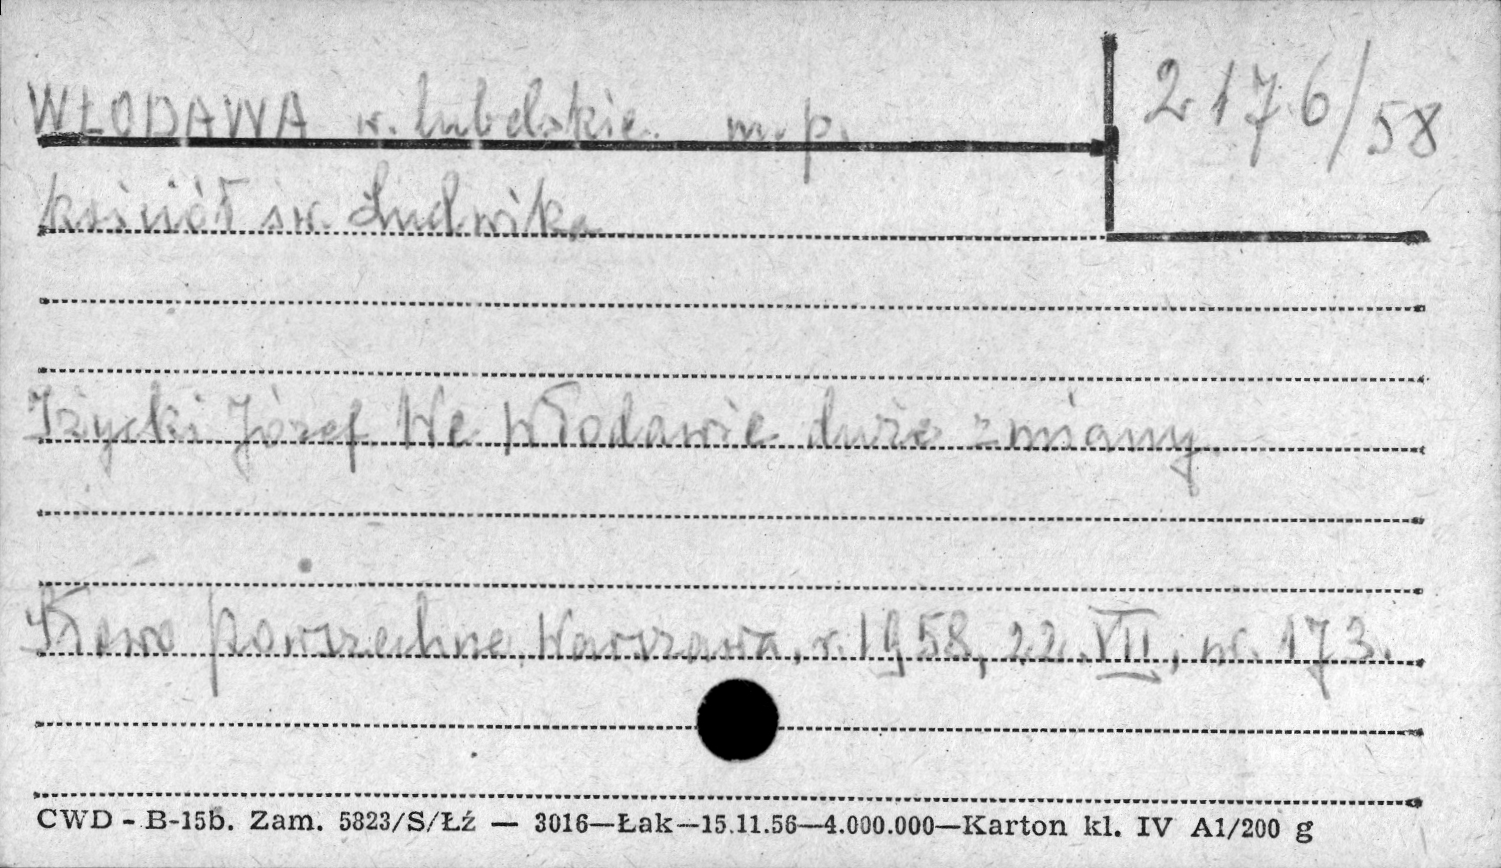 WŁODAWA w. lubelskie m. p. 2176/58
kościół św. Ludwika
Iżycki Józef We Włodawie duże zmiany.
Słowo powszechne, Warszawa, r. 1958, 22.VII, nr. 173.
CWD - B-15b. Zam. 5823/S/Łź — 3016—Łak—15.11.56—4.000.000—Karton kl. IV A1/200 g